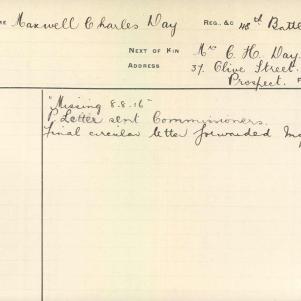 ME Maxwell Charles Day REG., &c 48th Batt
NEXT OF KIN Mrs C. H. Day
ADDRESS 37. Clive Street.
Prospect.
"Missing 8.8.16"
P Letter sent Commissioners.
Final circular letter forwarded